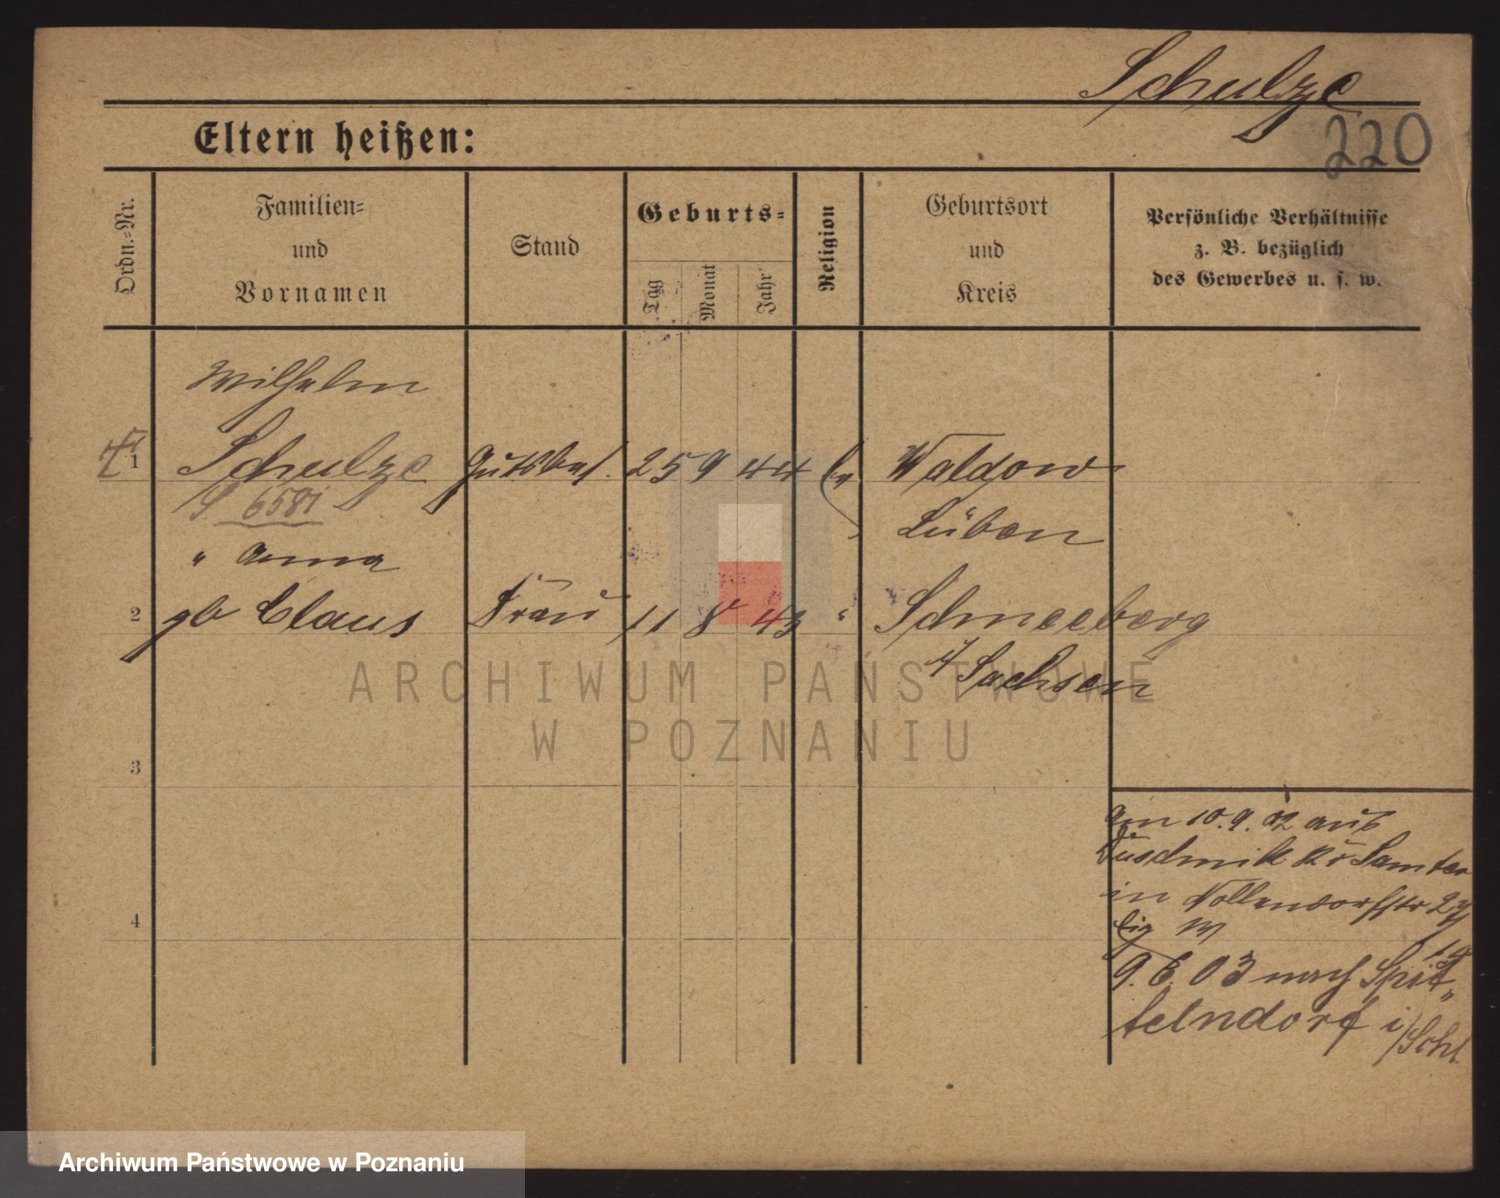 Schulze
220
Eltern heißen:
Ordn.-Nr.
Familien-
und
Vornamen
Stand
Geburts-
Tag
Monat
Jahr
Religion
Geburtsort
und
Kreis
Persönliche Verhältnisse
z. B. bezüglich
des Gewerbes u. s. w.
Wilhelm
1 Schulze Gutsbes. 25 9 44 Waldow
6581 Lüben
" Anna
2 gb Claus Frau 11 8 43 " Schneeberg
Sachsen
ARCHIWUM PAŃSTWOWE
W POZNANIU
3
am 10.9.02 aus
Samter
in Nollendorfstr 27
4
9.6.03 nach Spit-
telndorf i/Schl
Archiwum Państwowe w Poznaniu